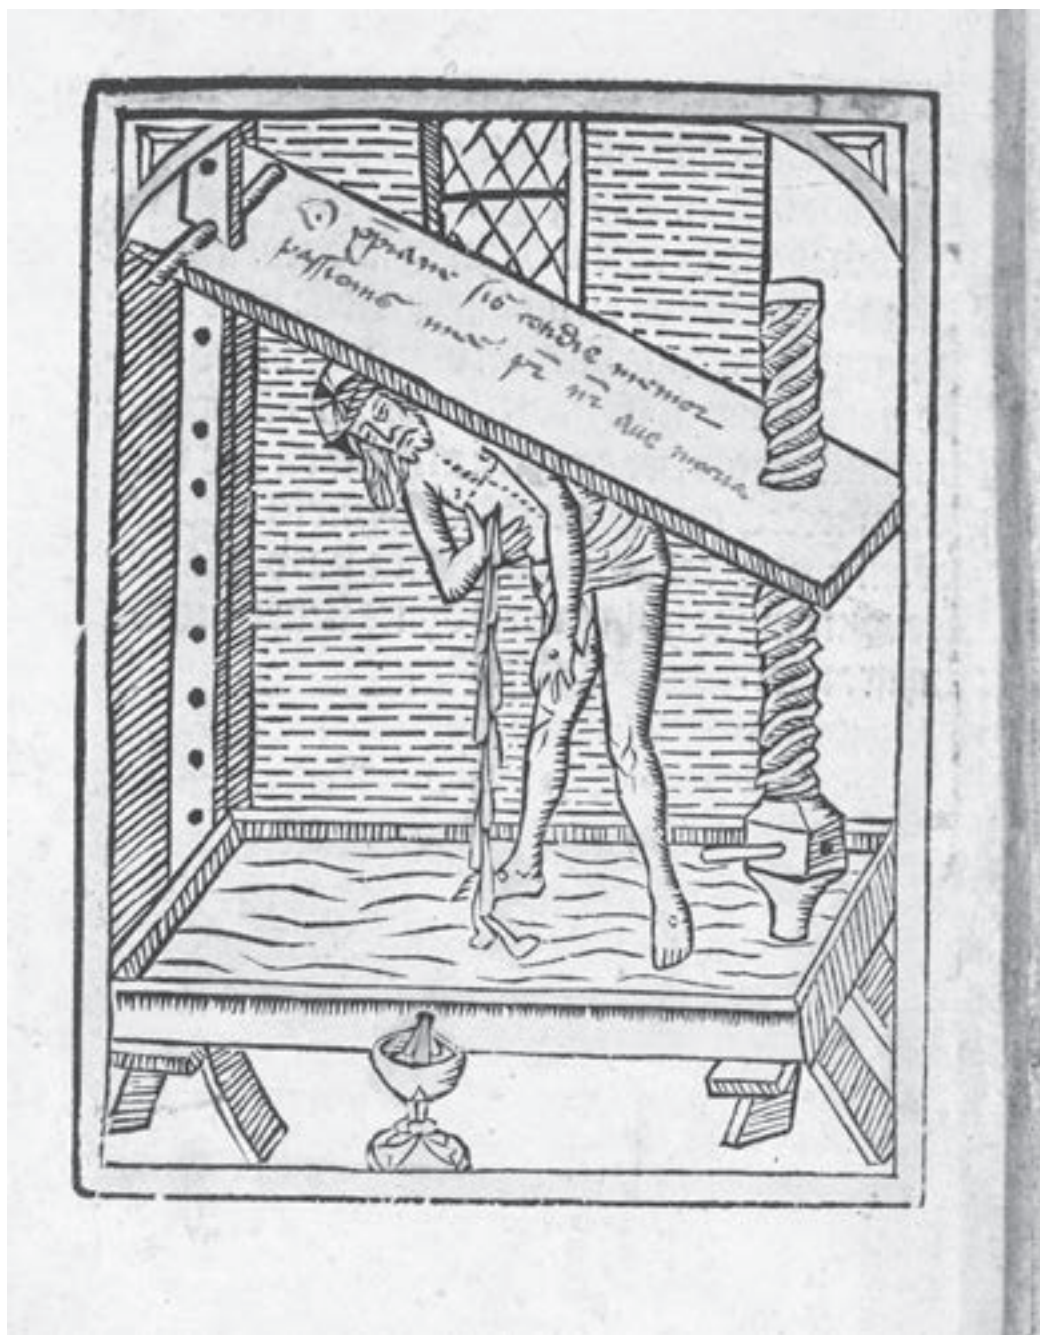 O xp̄iane sis cotidie memor
passionis mee pr̄ nr̄ aue maria